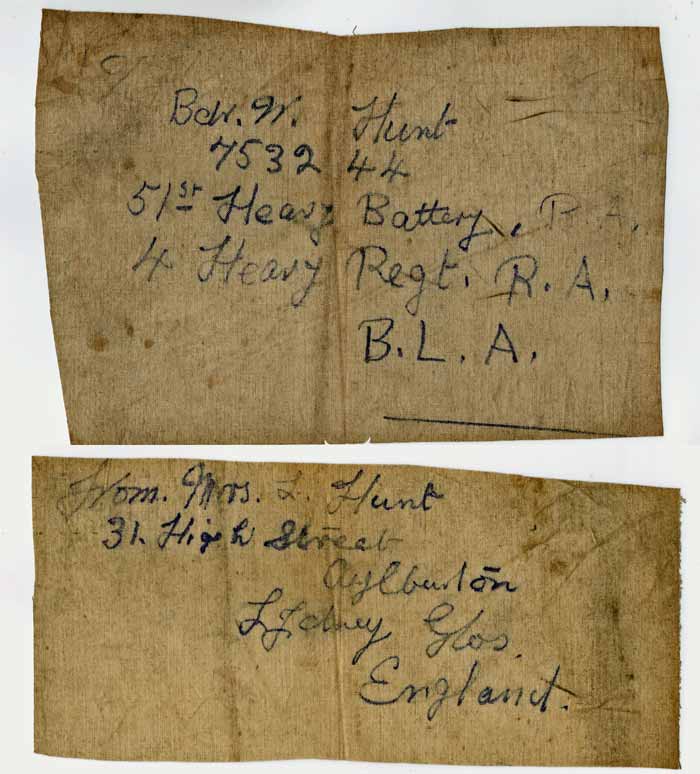 Bdr. W. Hunt
7532 44
51st Heavy Battery, R.A.
4 Heavy Regt. R.A.
B.L.A.
From. Mrs. L. Hunt
31. High Street
Aylburton
Lydney Glos.
England.